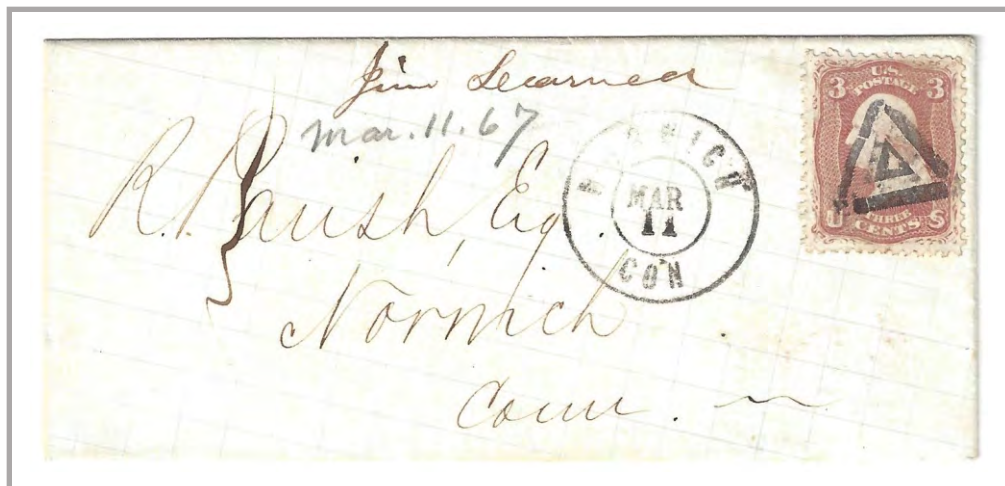 Jim Learned
Mar. 11. 67
R. Parish, Esq.
Norwich
Conn.
NORWICH
MAR
11
CON
U.S.
POSTAGE
3 3
U THREE S
CENTS